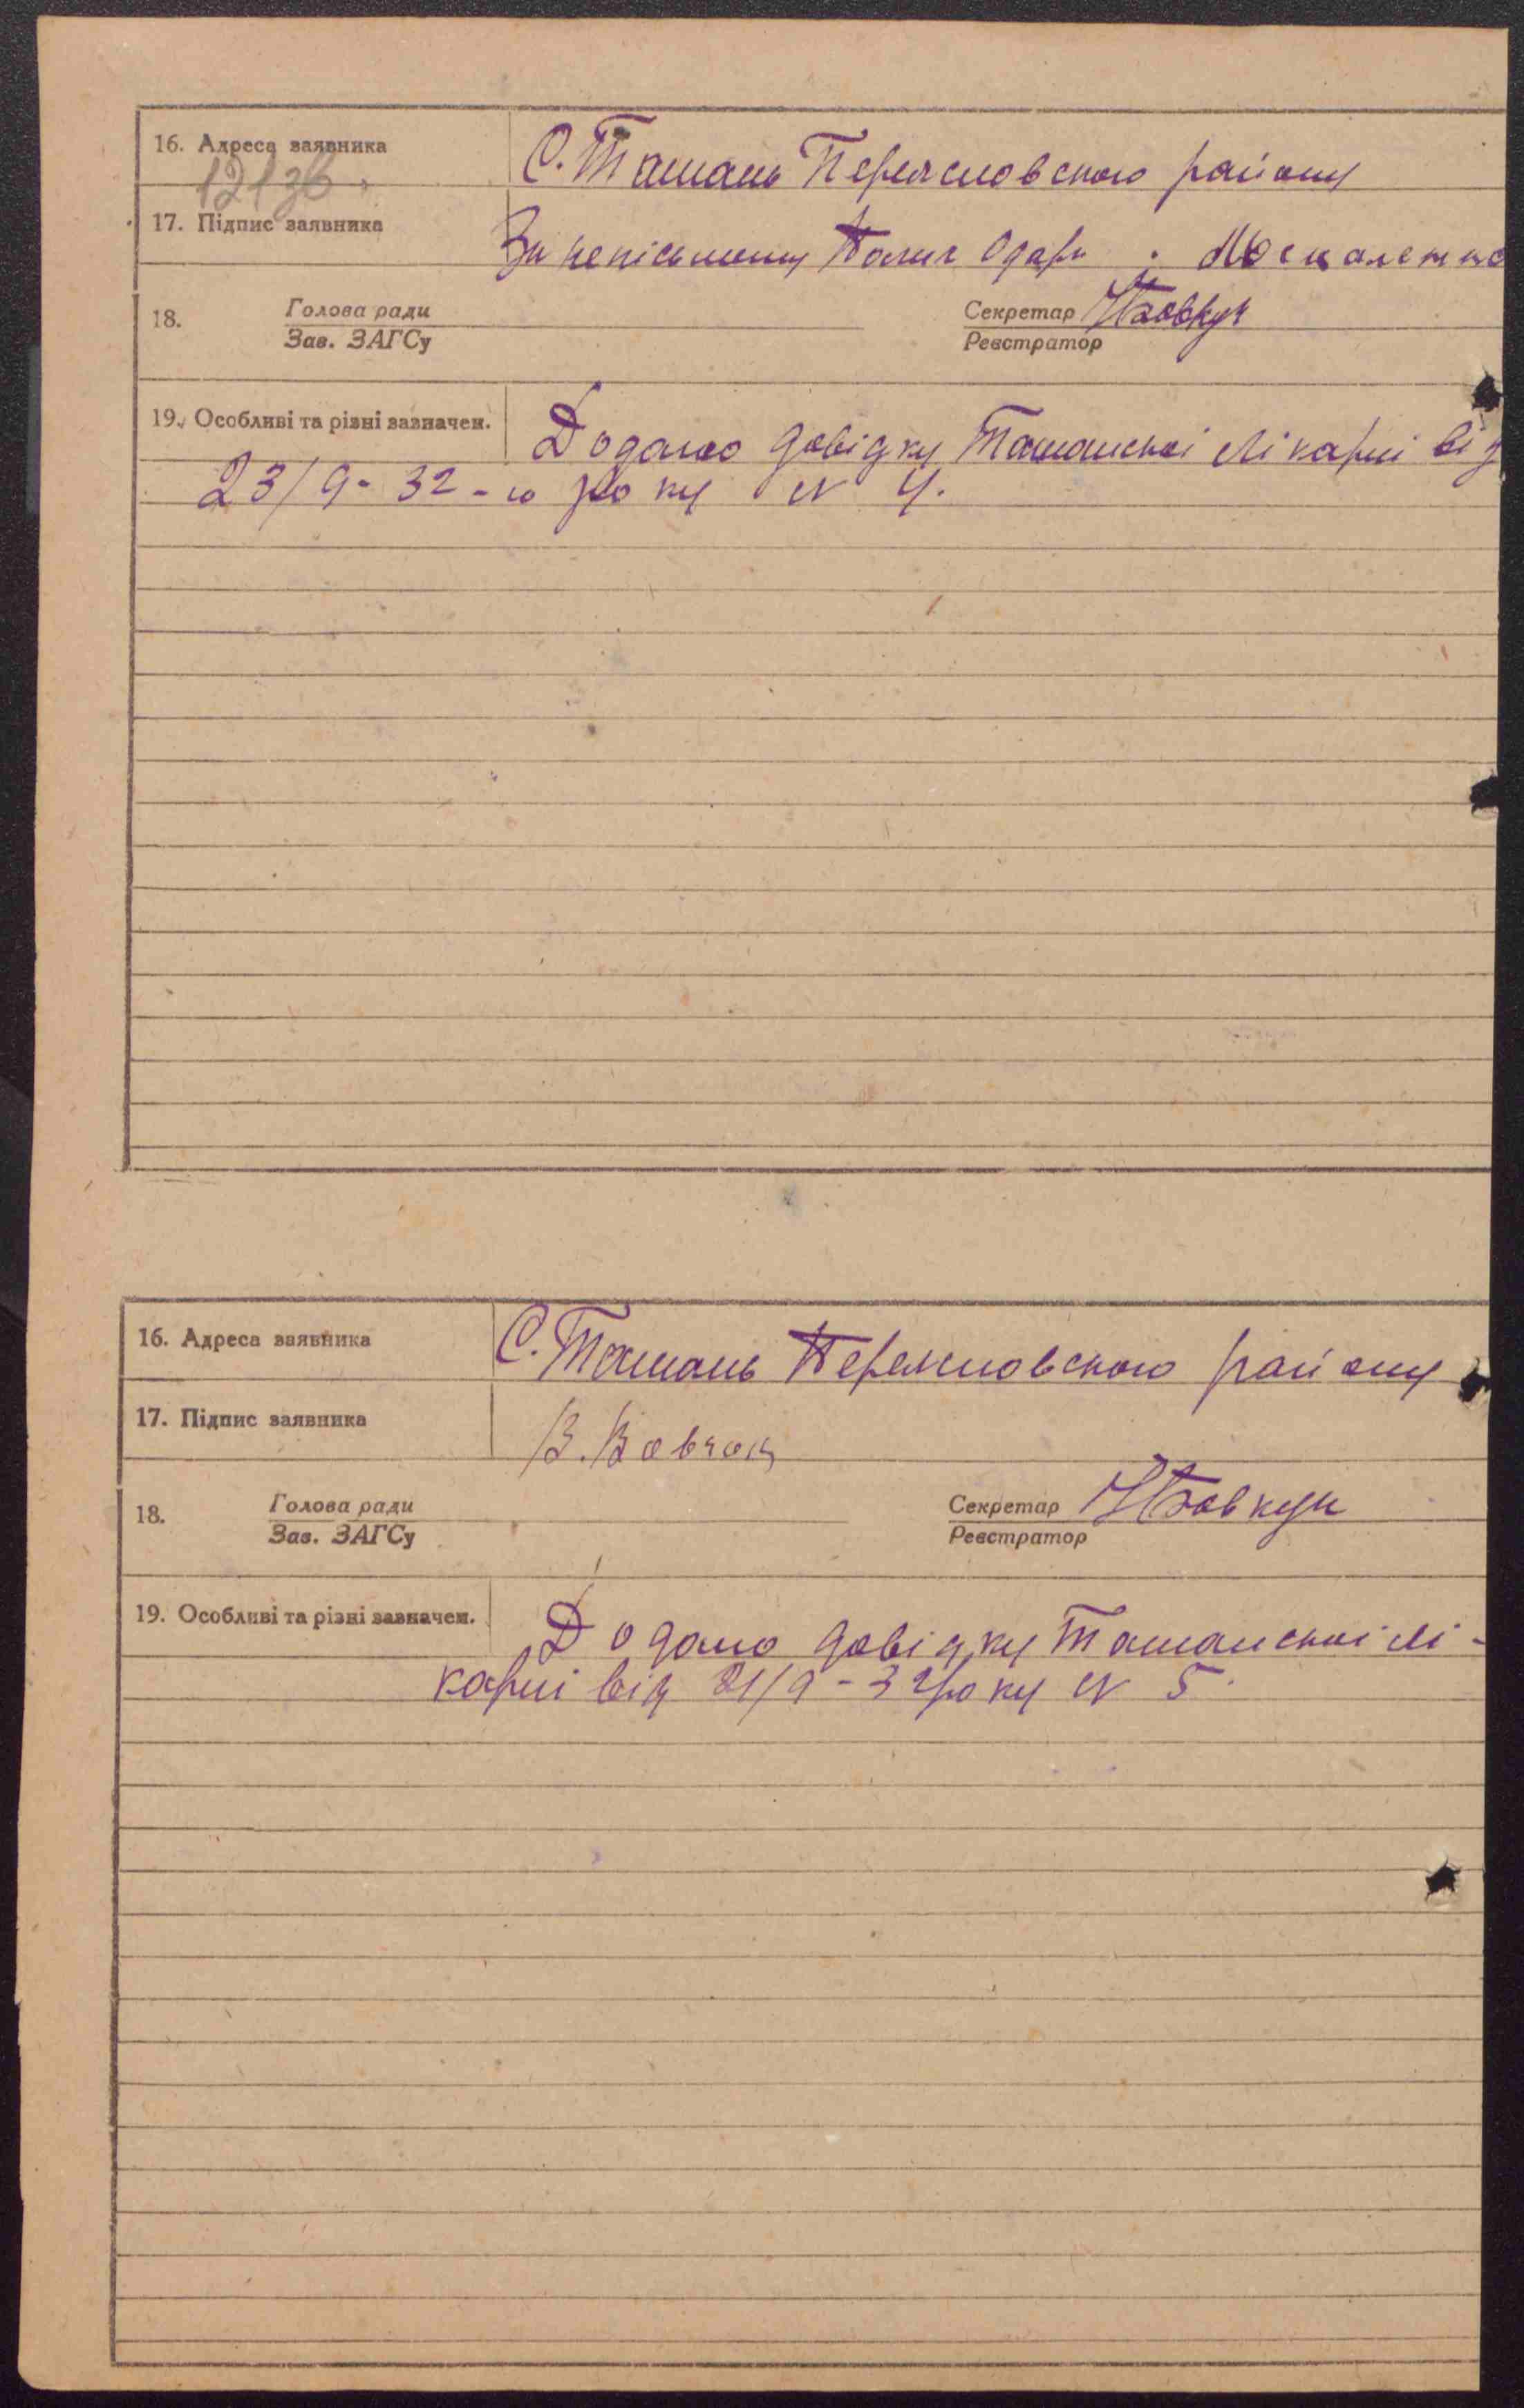 16. Адреса заявника С. Ташань Переясловського району
121зв
17. Підпис заявника За неписьменну Одари Москаленко
18. Голова ради Секретар НВовкун
Зав. ЗАГСу Реєстратор
19. Особливі та різні зазначен. Додано довідку Ташанської лікарні від
23/9-32-го року N 4.
16. Адреса заявника С. Ташань Переясловського району
17. Підпис заявника В. Вовчок
18. Голова ради Секретар НВовкун
Зав. ЗАГСу Реєстратор
19. Особливі та різні зазначен. Додано довідку Ташанської лі-
карні від 21/9-32 року N 5.